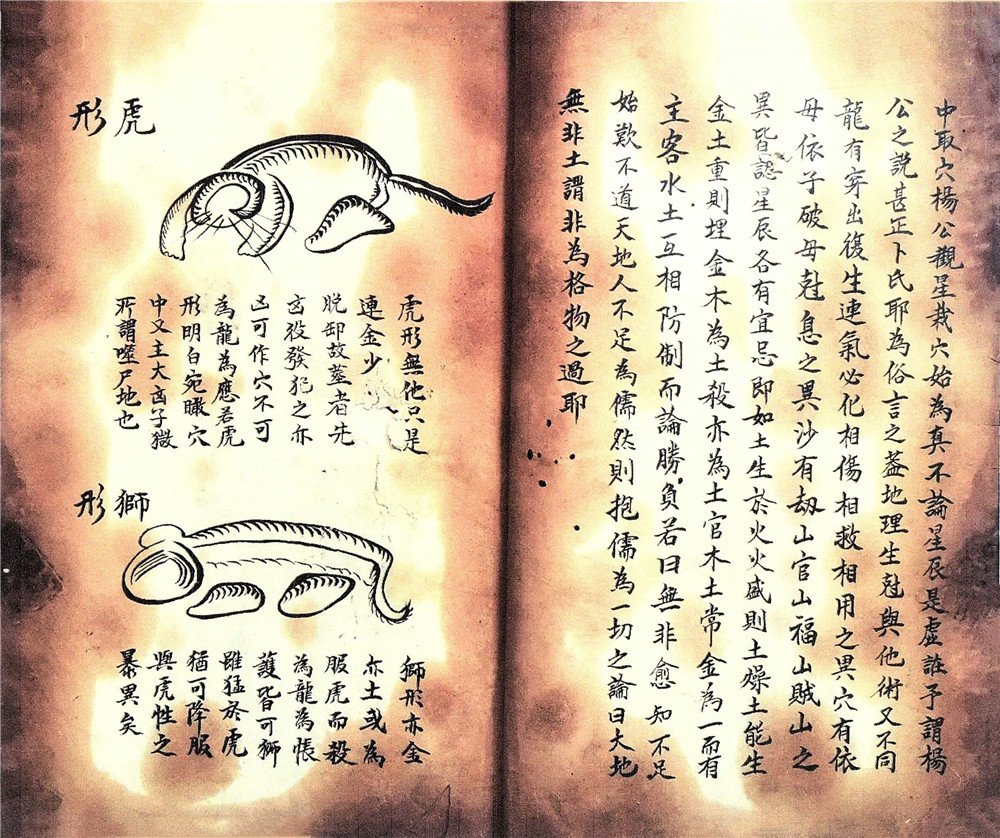 中取穴楊公觀星栽穴始為真不論星辰是虛誑予謂楊
公之說甚正卜氏耶為俗言之蓋地理生尅與他術又不同
龍有穿出復生連氣必化相傷相救相用之異穴有依
母依子破母尅息之異沙有刼山官山福山賊山之
異皆認星辰各有宜忌即如土生於火火盛則土燥土能生
金土重則埋金木為土殺亦為土官木土常金為一而有
主客水土互相防制而論勝負若曰無非愈知不足
始歎不道天地人不足為儒然則抱儒為一切之論曰大地
無非土謂非為格物之過耶
虎形
虎形無他只是
連金少
脱卸故塟者先
凶役發犯之亦
凶可作穴不可
為龍為應若虎
形明白宛瞰穴
中又主大凶子
所謂噬尸地也
獅形
獅形亦金
亦土或為
服虎而殺
為龍為帳
護皆可獅
雖猛於虎
猶可降服
與虎性之
暴異矣